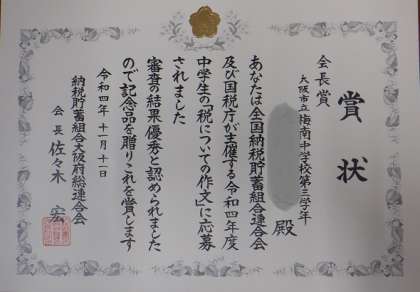 賞状
会長賞
大阪市立梅南中学校第三学年
殿
あなたは全国納税貯蓄組合連合会
及び国税庁が主催する令和四年度
中学生の「税についての作文」に応募
されました
審査の結果優秀と認められました
ので記念品を贈りこれを賞します
令和四年十一月十一日
納税貯蓄組合大阪府総連合会
会長 佐々木 宏